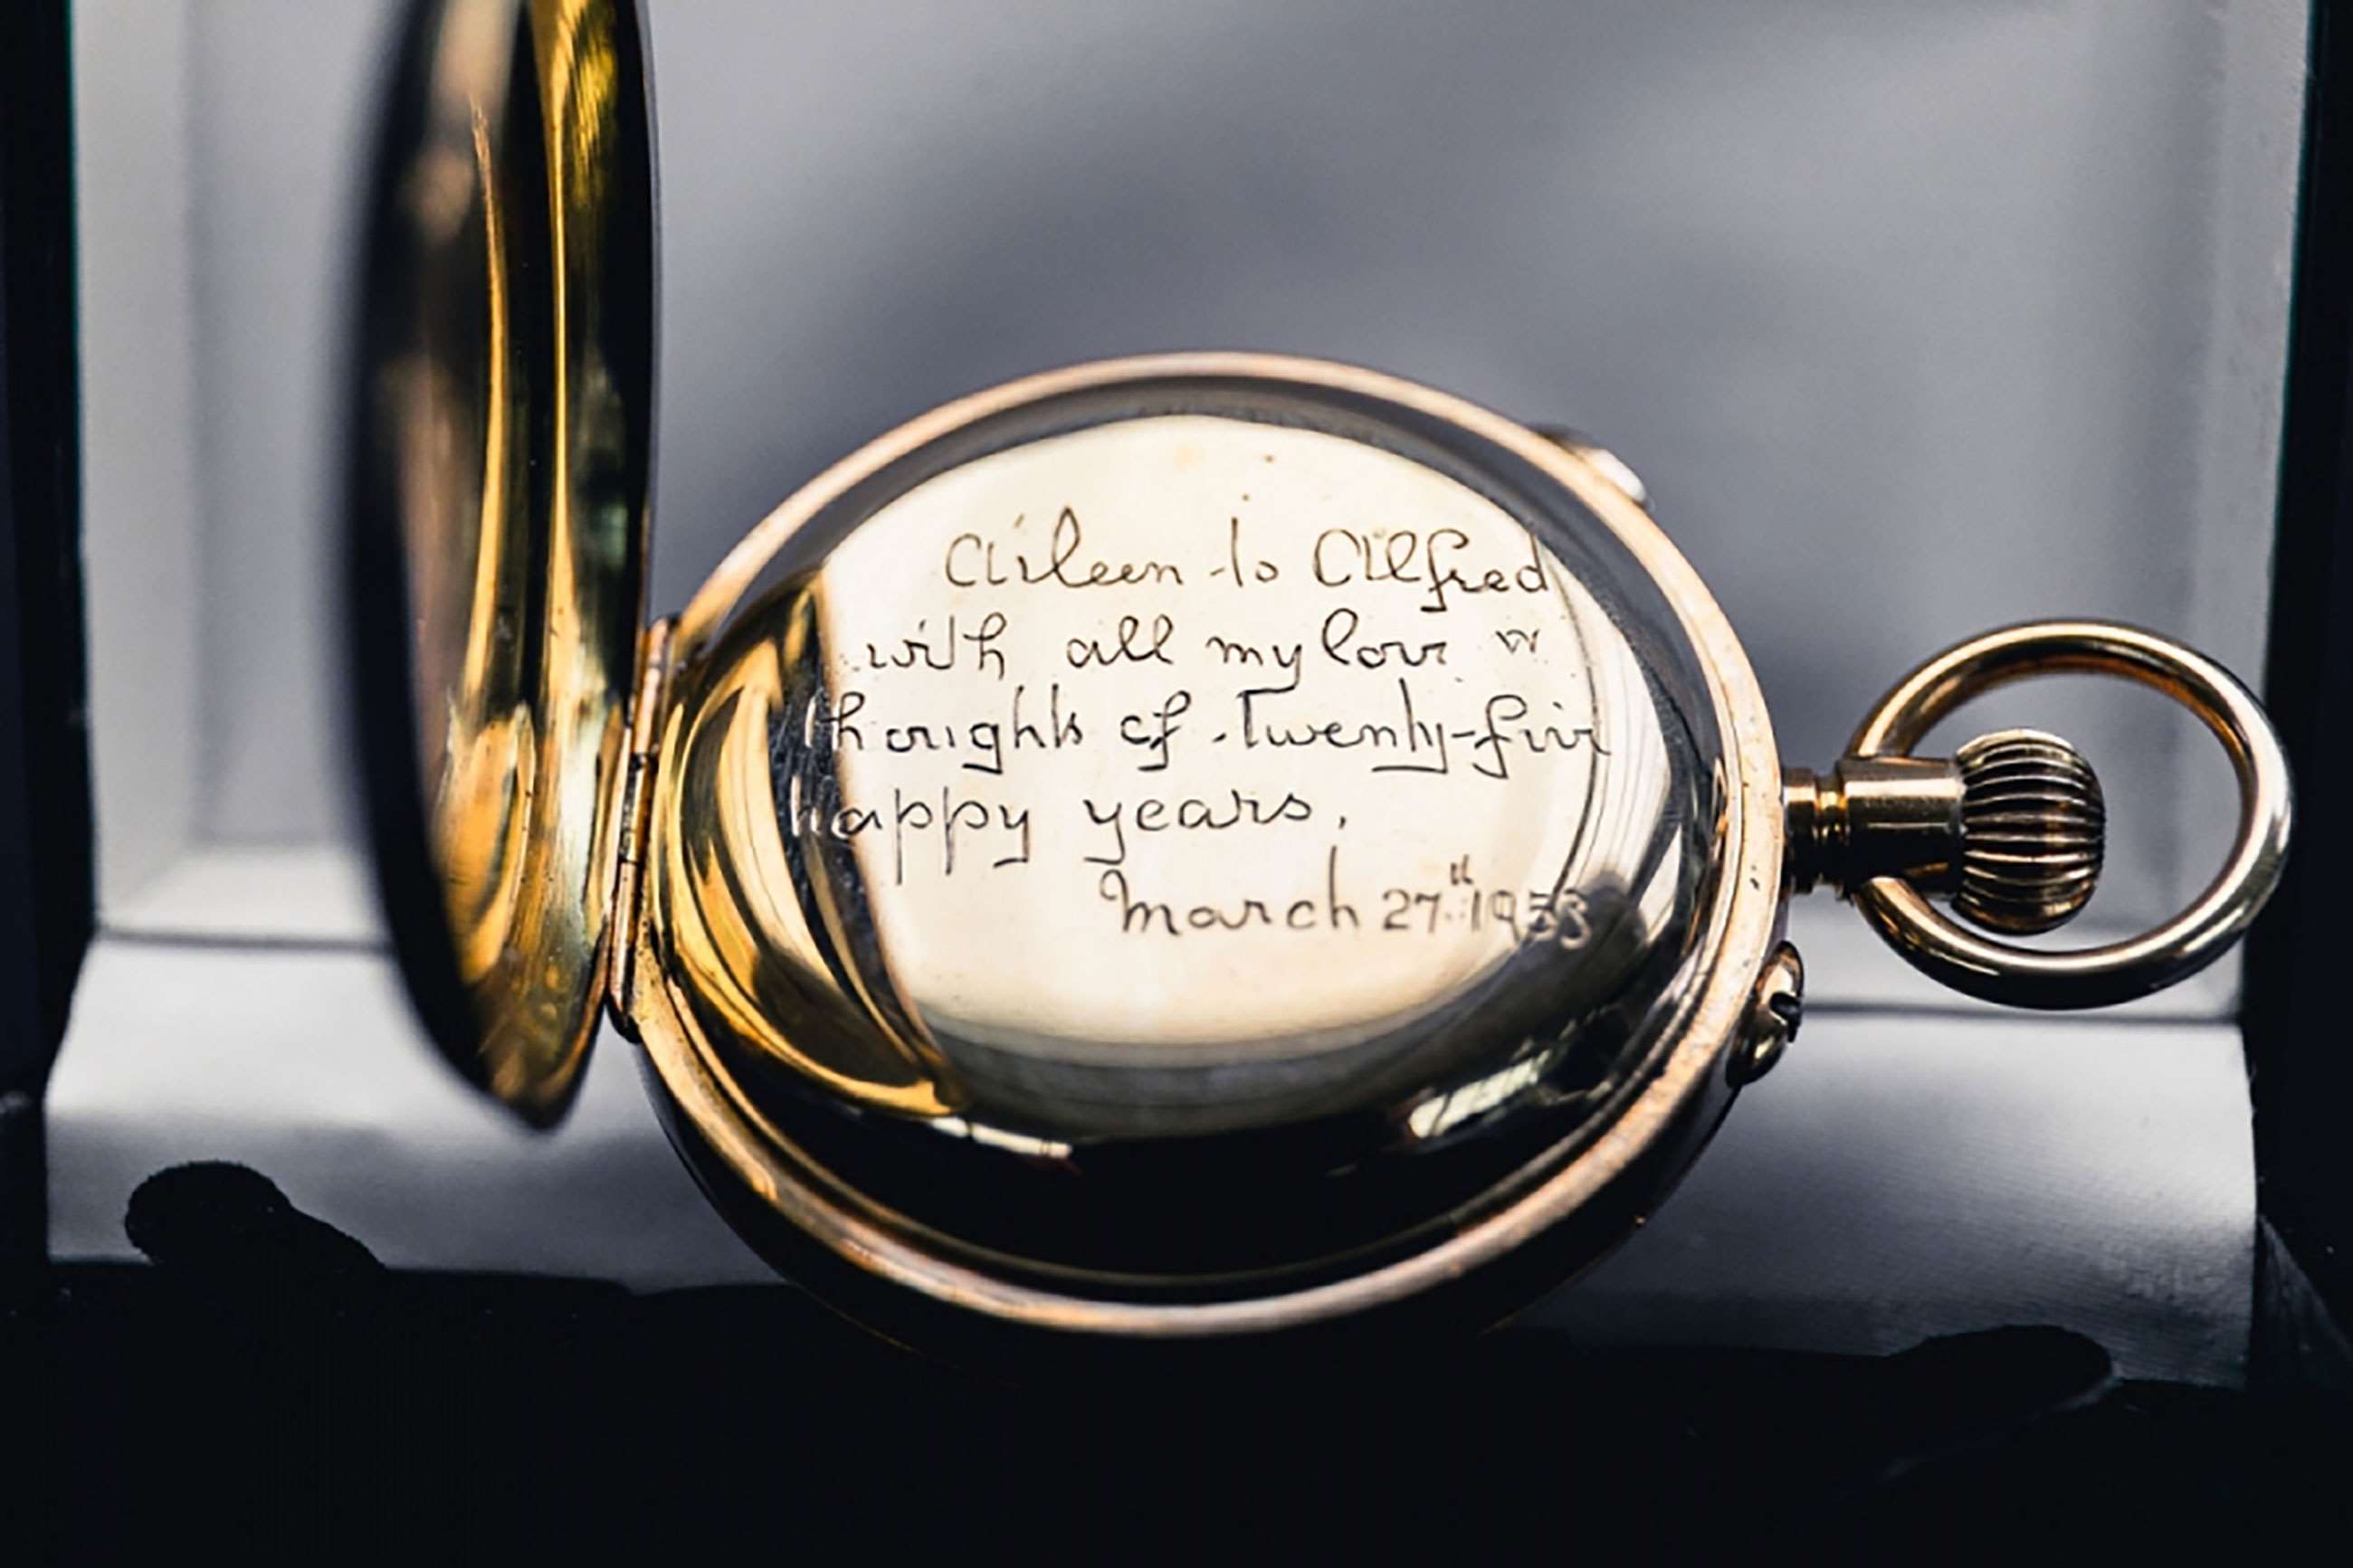 Aileen to Alfred
with all my love
thoughts of twenty-five
happy years.
March 27th 1953